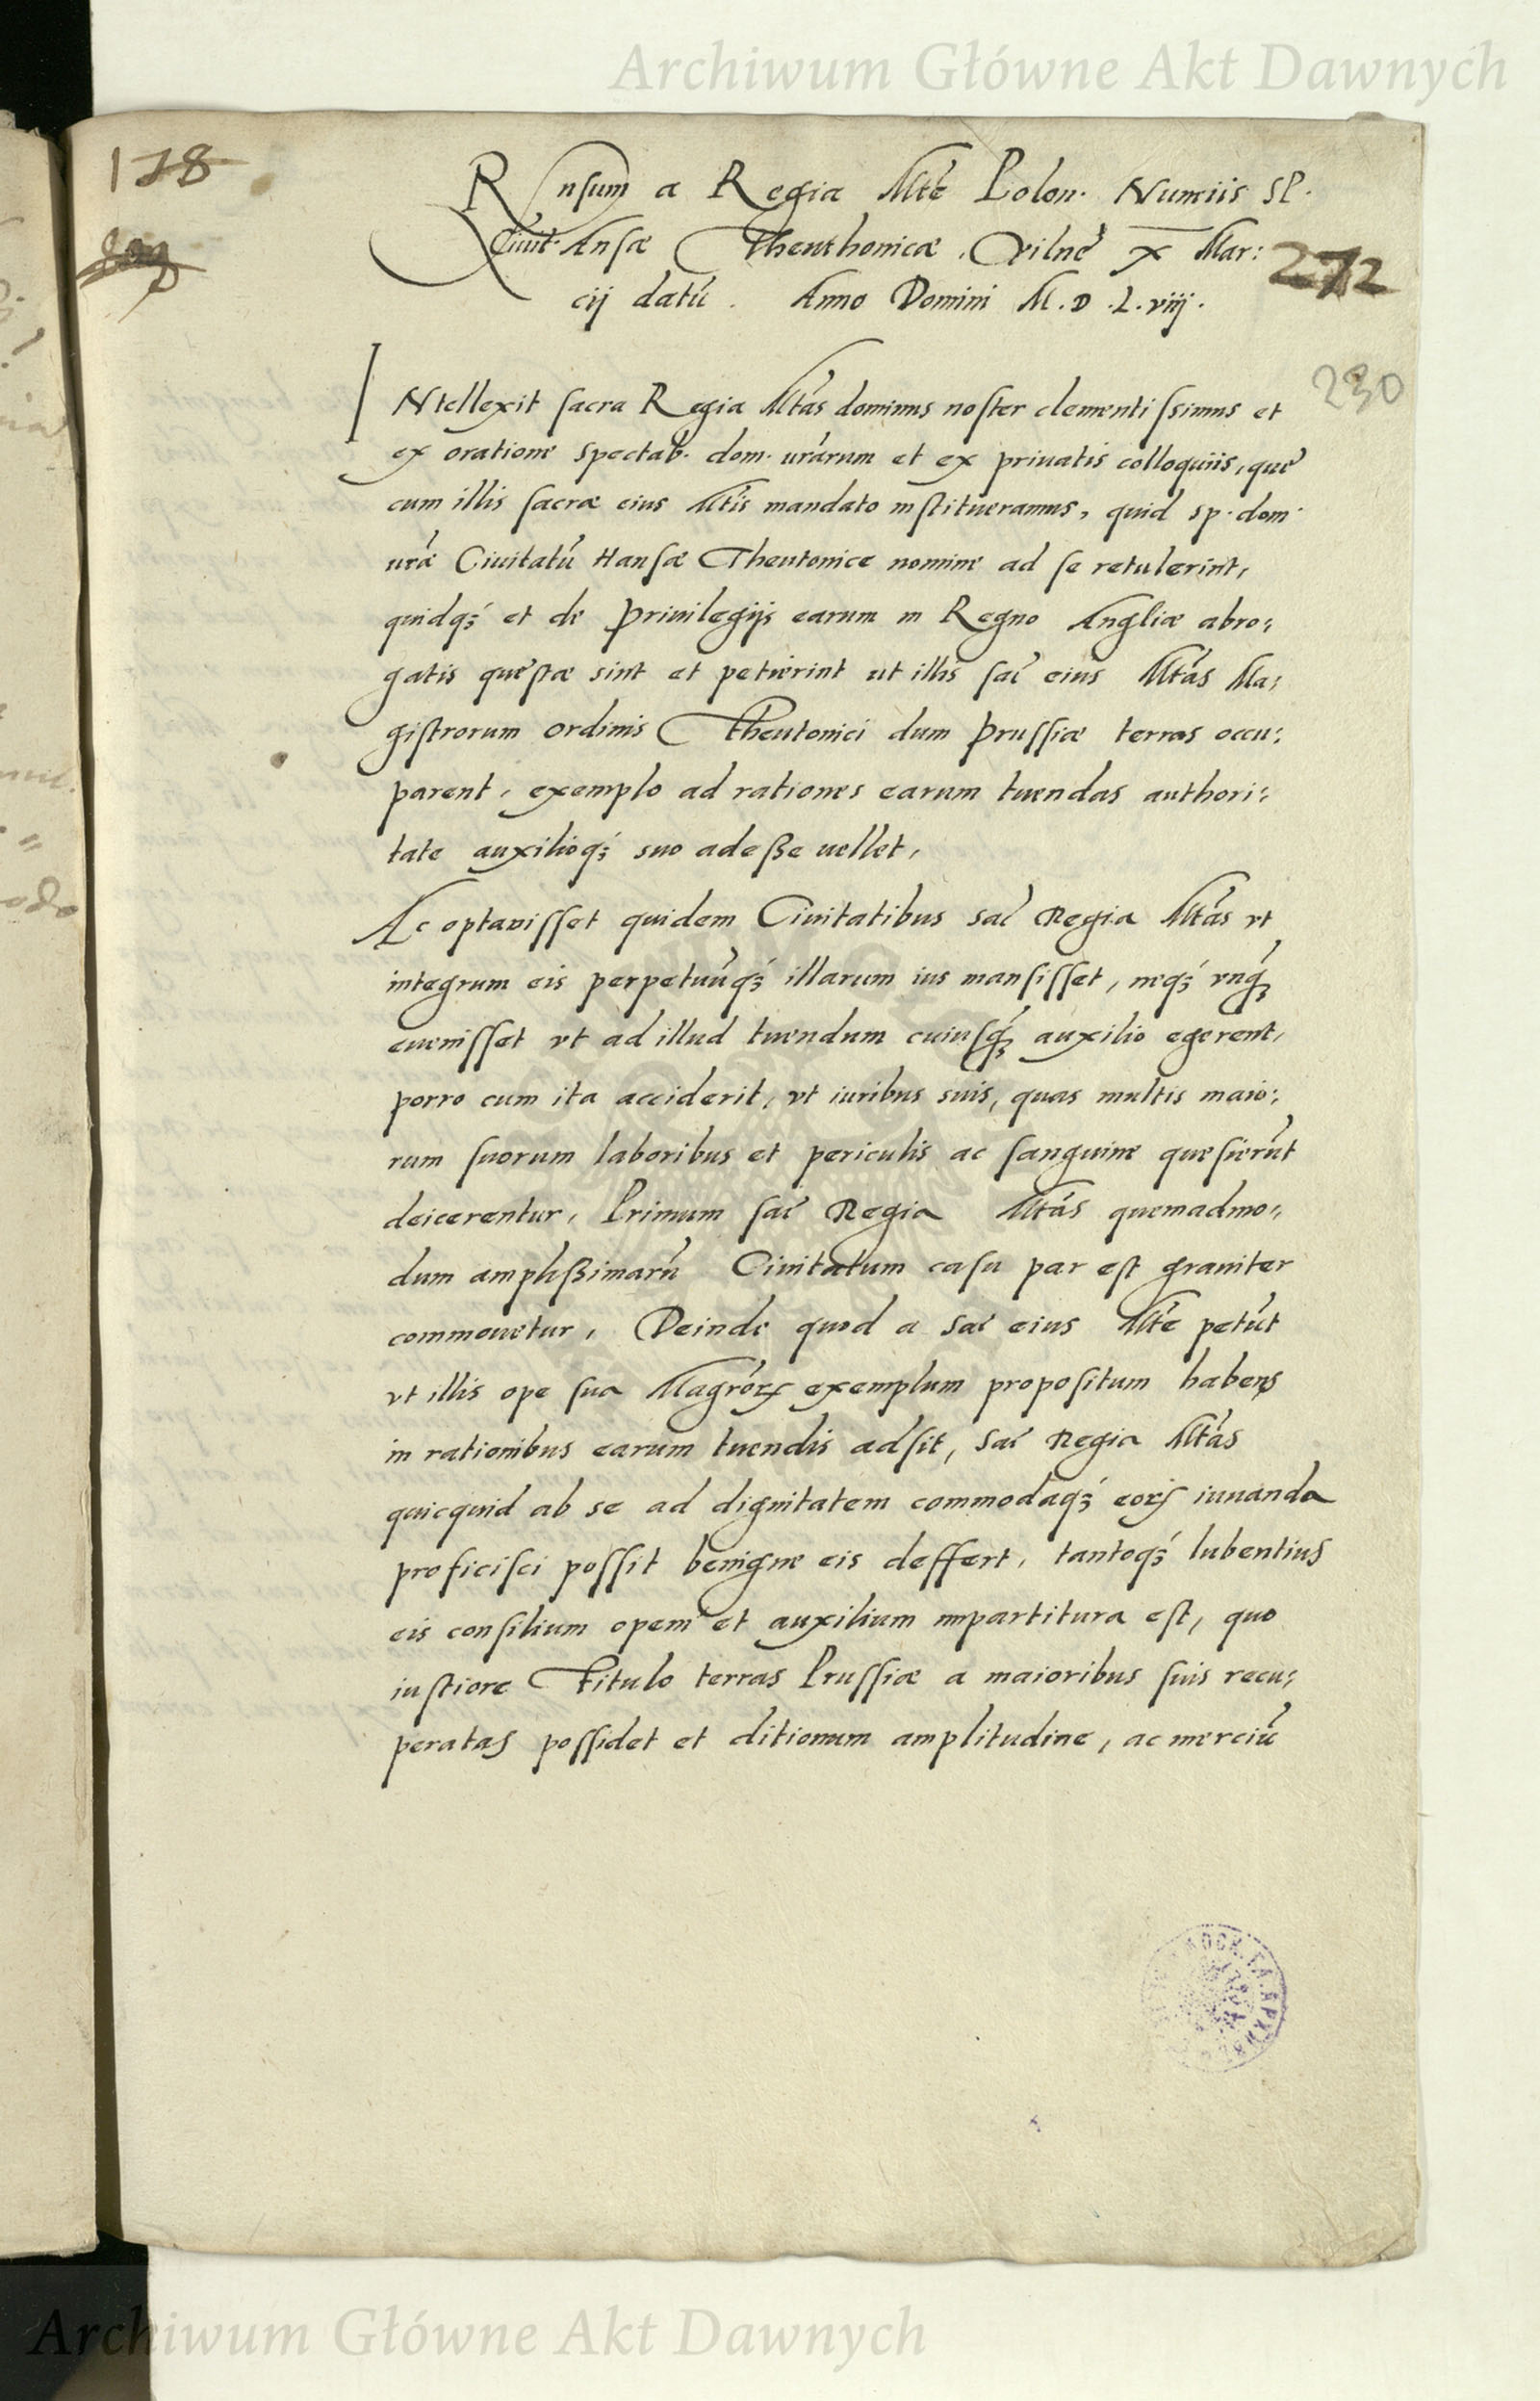 Archiwum Główne Akt Dawnych
178
Rnsum a Regia Mtē Polon. Nunciis SP.
Ciuit. Ansæ Theuthonicæ. Vilnę X Mar:
272
cij datū. Anno Domini M.D.L.viij.
230
INtellexit sacra Regia Mtás dominus noster clementissimus et
ex oratione spectab. dom. urárum et ex priuatis colloquiis, quę
cum illis sacræ eius Mtis mandato institueramus, quid sp. dom.
uræ Ciuitatū Hansæ Theutonice nomine ad se retulerint,
quidq; et de priuilegijs earum in Regno Angliæ abro:
gatis questæ sint et petierint ut illis sac eius Mtás Ma:
gistrorum ordinis Theutonici dum Prussiæ terras occu:
parent, exemplo ad rationes earum tuendas authori:
tate auxilioq; suo adeße uellet.
Ac optauisset quidem Ciuitatibus sac Regia Mtás vt
integrum eis perpetuūq; illarum ius mansisset, neq; vnq;
euenisset vt ad illud tuendum cuiusq; auxilio egerent,
porro cum ita acciderit, vt iuribus suis, quas multis maio:
rum suorum laboribus et periculis ac sanguine quesierūt
deicerentur, Primum sac Regia Mtás quemadmo:
dum amplißimarū Ciuitatum casu par est grauiter
commouetur, Deinde quod a sac eius Mtē petūt
vt illis ope sua Magrōrꝝ exemplum propositum habens
in rationibus earum tuendis adsit, sac Regia Mtás
quicquid ab se ad dignitatem commodaq; eorꝝ iuuanda
proficisci possit benigne eis deffert, tantoq; lubentius
eis consilium opem et auxilium impartitura est, quo
iustiore titulo terras Prussiæ a maioribus suis recu:
peratas possidet et ditionum amplitudine, ac merciū
Archiwum Główne Akt Dawnych